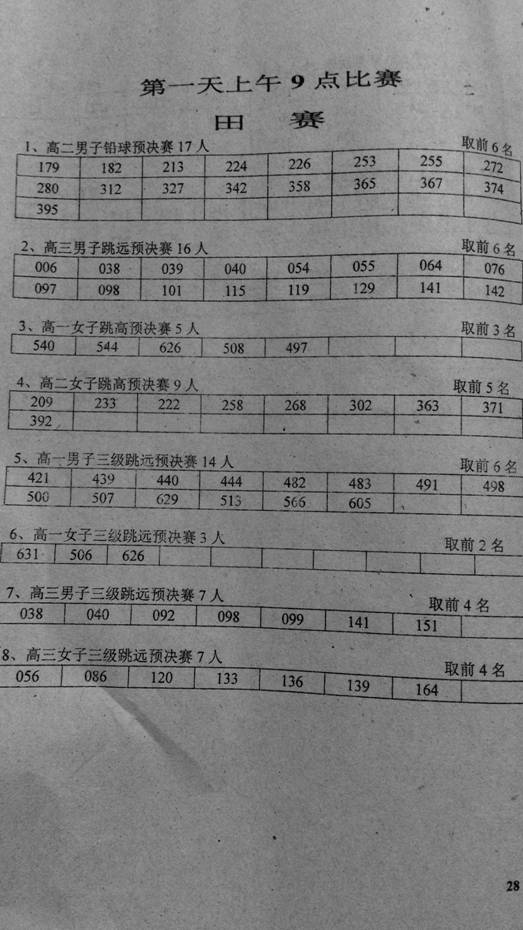 第一天上午9点比赛
田 赛
1、高二男子铅球预决赛17人 取前6名
179 182 213 224 226 253 255 272
280 312 327 342 358 365 367 374
395
2、高三男子跳远预决赛16人 取前6名
006 038 039 040 054 055 064 076
097 098 101 115 119 129 141 142
3、高一女子跳高预决赛5人 取前3名
540 544 626 508 497
4、高二女子跳高预决赛9人 取前5名
209 233 222 258 268 302 363 371
392
5、高一男子三级跳远预决赛14人 取前6名
421 439 440 444 482 483 491 498
500 507 629 513 566 605
6、高一女子三级跳远预决赛3人 取前2名
631 506 626
7、高三男子三级跳远预决赛7人 取前4名
038 040 092 098 099 141 151
8、高三女子三级跳远预决赛7人 取前4名
056 086 120 133 136 139 164
28